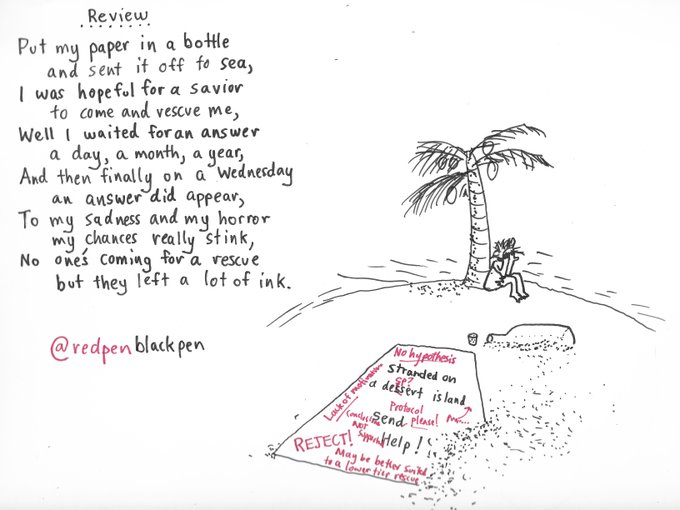 Review
Put my paper in a bottle
and sent it off to sea,
I was hopeful for a savior
to come and rescue me,
Well I waited for an answer
a day, a month, a year,
And then finally on a Wednesday
an answer did appear,
To my sadness and my horror
my chances really stink,
No one's coming for a rescue
but they left a lot of ink.
@redpenblackpen
No hypothesis
Lack of motivation
Stranded on
sp?
a dessert island
Protocol
Send please!
Conclusion
NOT
Supported
Help!
REJECT!
May be better suited
to a lower tier rescue